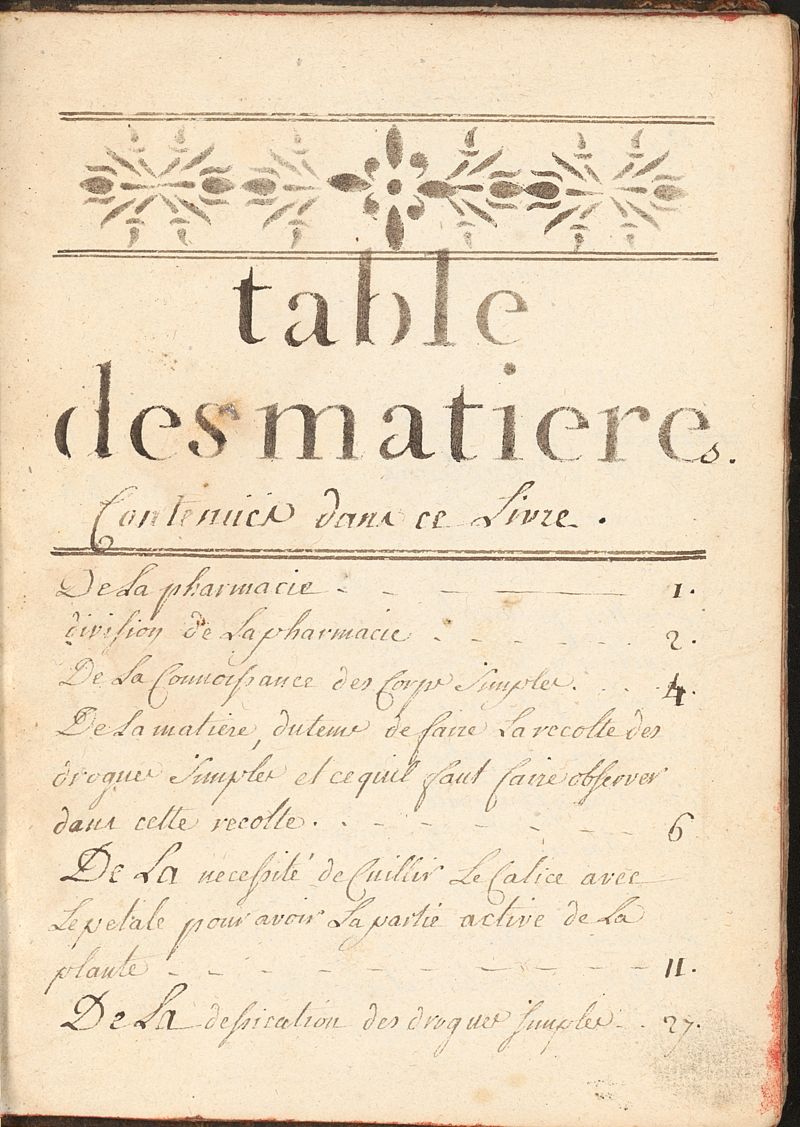 table
des matieres.
Contenues dans ce Livre.
De La pharmacie - - - 1.
division de La pharmacie - - - - - 2.
De La Connoissance des Corps simples. . . . 4.
De La matiere, du tems de faire La recolte des
drogues simples et ce quil faut faire observer
dans cette recolte. - - - - - - - 6
De La necessité de Cuillir Le Calice avec
Le petale pour avoir La partie active de La
plante - - - - - - - - - 11.
De La dessication des drogues simples - - 27.